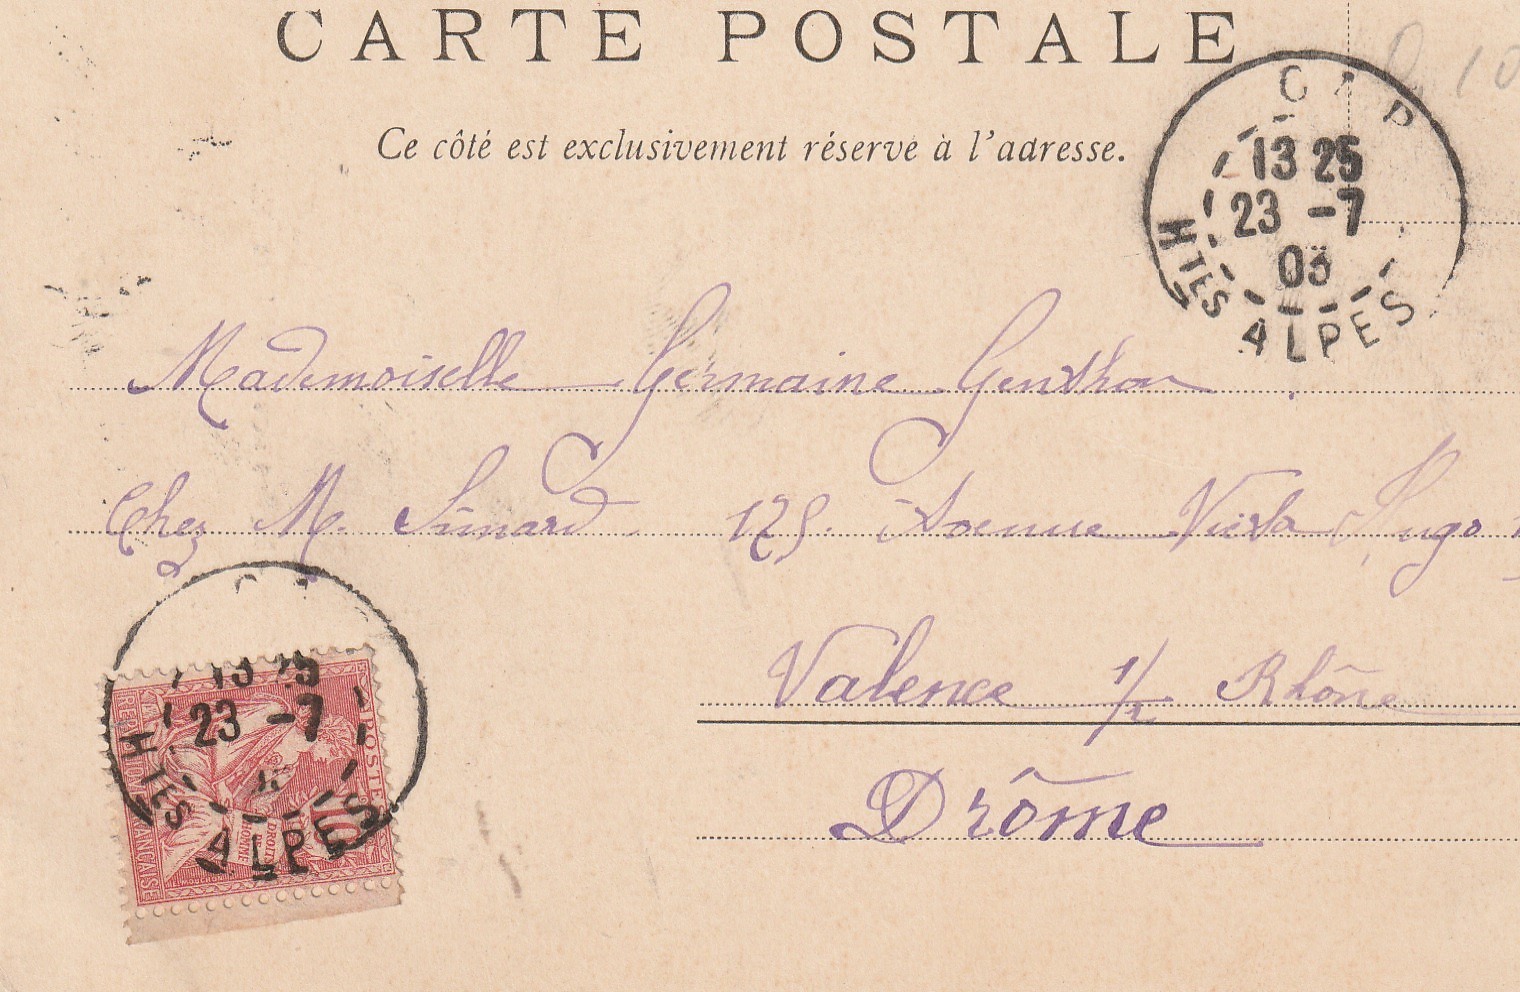 CARTE POSTALE
Ce côté est exclusivement réservé à l'adresse.
GAP
13 25
23 -7
03
HTES ALPES
Mademoiselle Germaine Genthon
Chez M. Simard 125. Avenue Victor Hugo
Valence s/ Rhône
Drôme
13 25
23 -7
HTES ALPES
POSTES
10
DROITS
HOMME